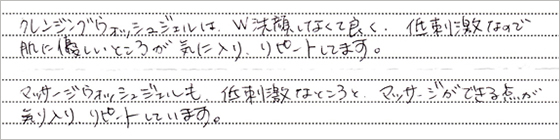 クレンジングウォッシュジェルは、W洗顔しなくて良く、低刺激なので
肌に優しいところが気に入り、リピートしてます。
マッサージウォッシュジェルも、低刺激なところと、マッサージができる点が
気に入り、リピートしています。